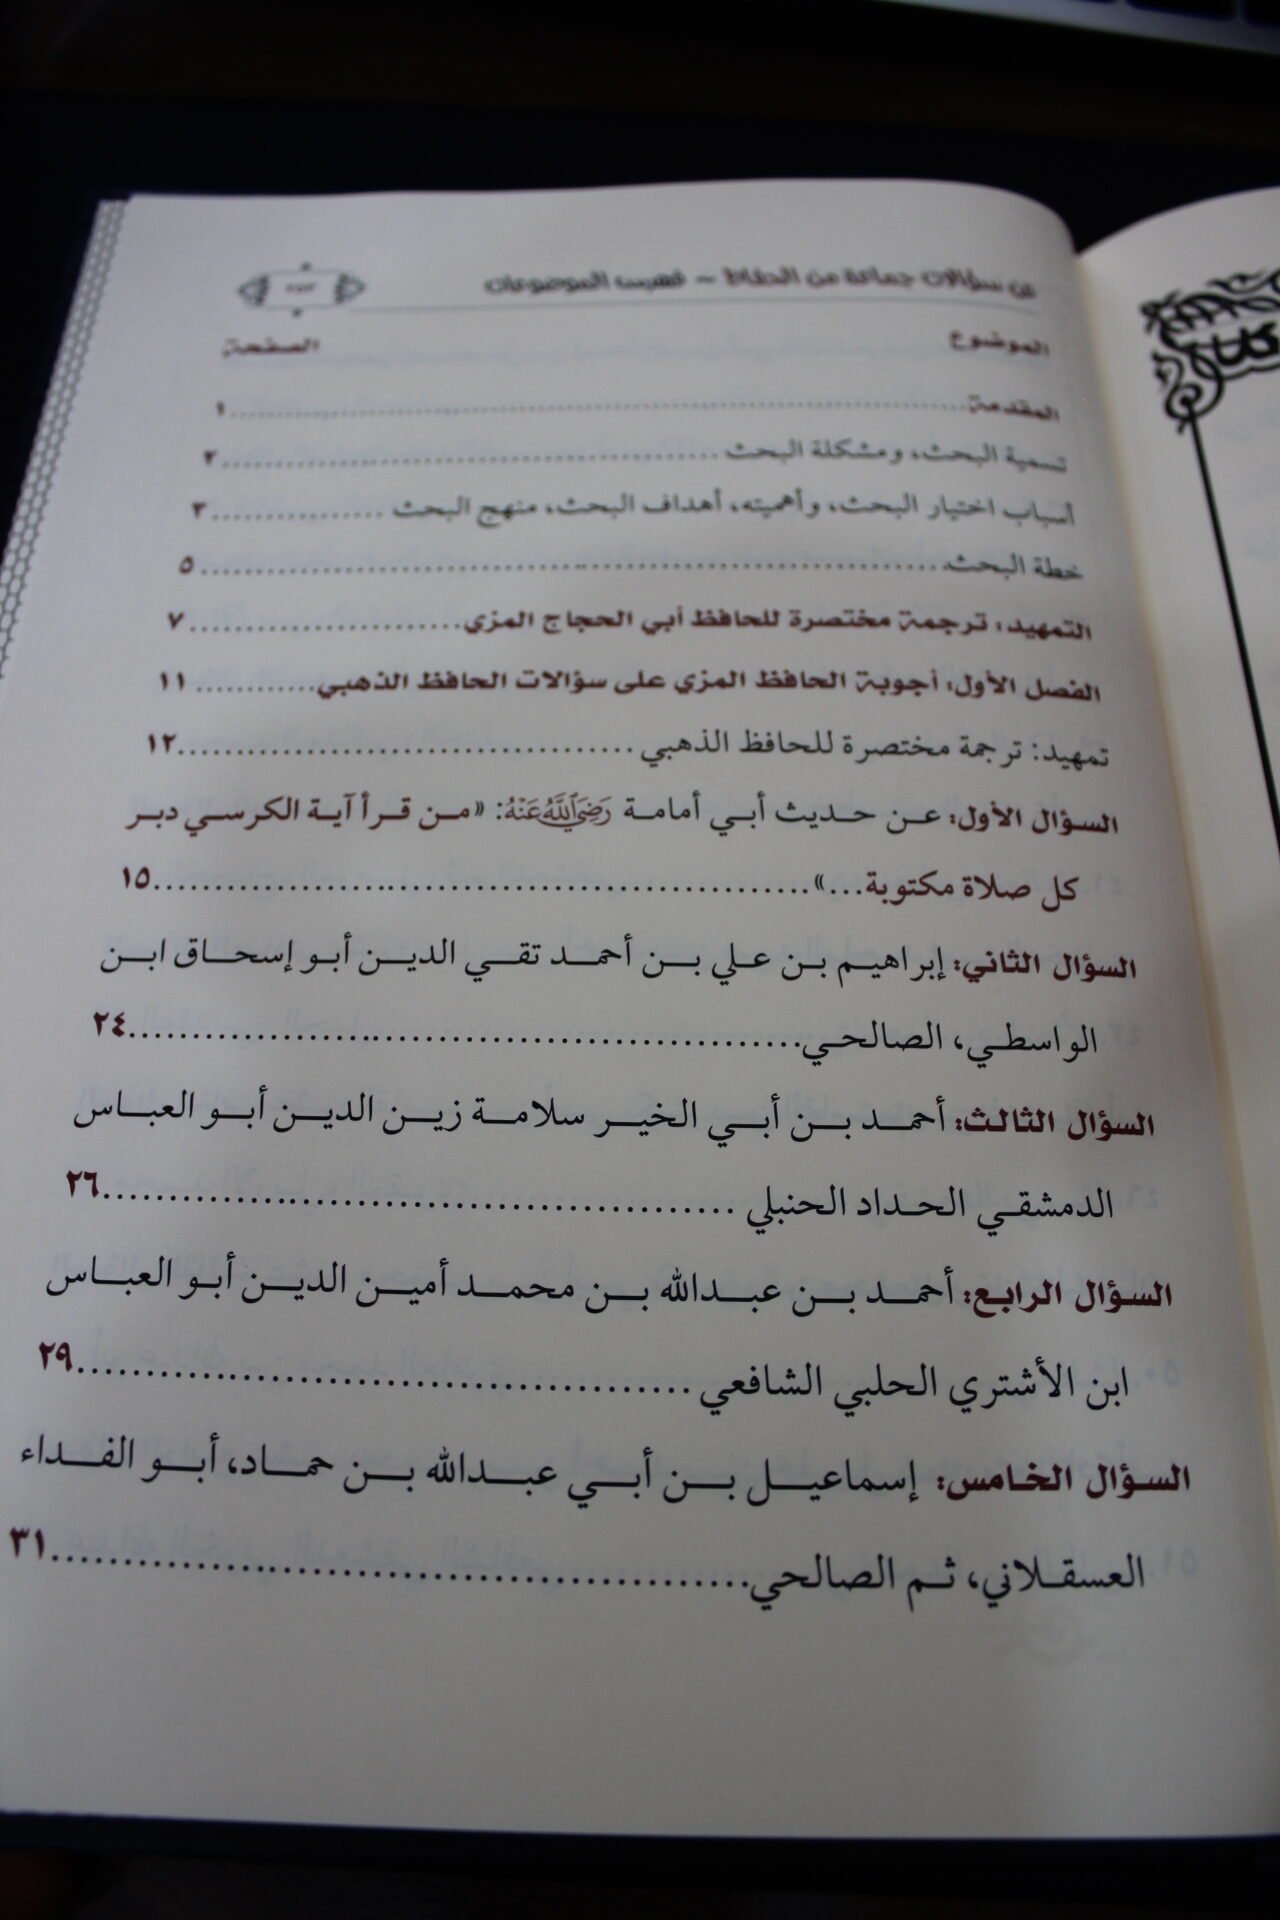 عن سؤالات جماعة من الحفاظ ~ فهرس الموضوعات
الموضوع الصفحة
المقدمة........................................ ١
تسمية البحث، ومشكلة البحث........................................ ٢
أسباب اختيار البحث، وأهميته، أهداف البحث، منهج البحث................ ٣
خطة البحث........................................ ٥
التمهيد: ترجمة مختصرة للحافظ أبي الحجاج المزي........................ ٧
الفصل الأول: أجوبة الحافظ المزي على سؤالات الحافظ الذهبي............ ١١
تمهيد: ترجمة مختصرة للحافظ الذهبي........................................ ١٢
السؤال الأول: عن حديث أبي أمامة رَضِيَ اللَّهُ عَنْهُ: «من قرأ آية الكرسي دبر
كل صلاة مكتوبة...»........................................ ١٥
السؤال الثاني: إبراهيم بن علي بن أحمد تقي الدين أبو إسحاق ابن
الواسطي، الصالحي........................................ ٢٤
السؤال الثالث: أحمد بن أبي الخير سلامة زين الدين أبو العباس
الدمشقي الحداد الحنبلي........................................ ٢٦
السؤال الرابع: أحمد بن عبدالله بن محمد أمين الدين أبو العباس
ابن الأشتري الحلبي الشافعي........................................ ٢٩
السؤال الخامس: إسماعيل بن أبي عبدالله بن حماد، أبو الفداء
العسقلاني، ثم الصالحي........................................ ٣١